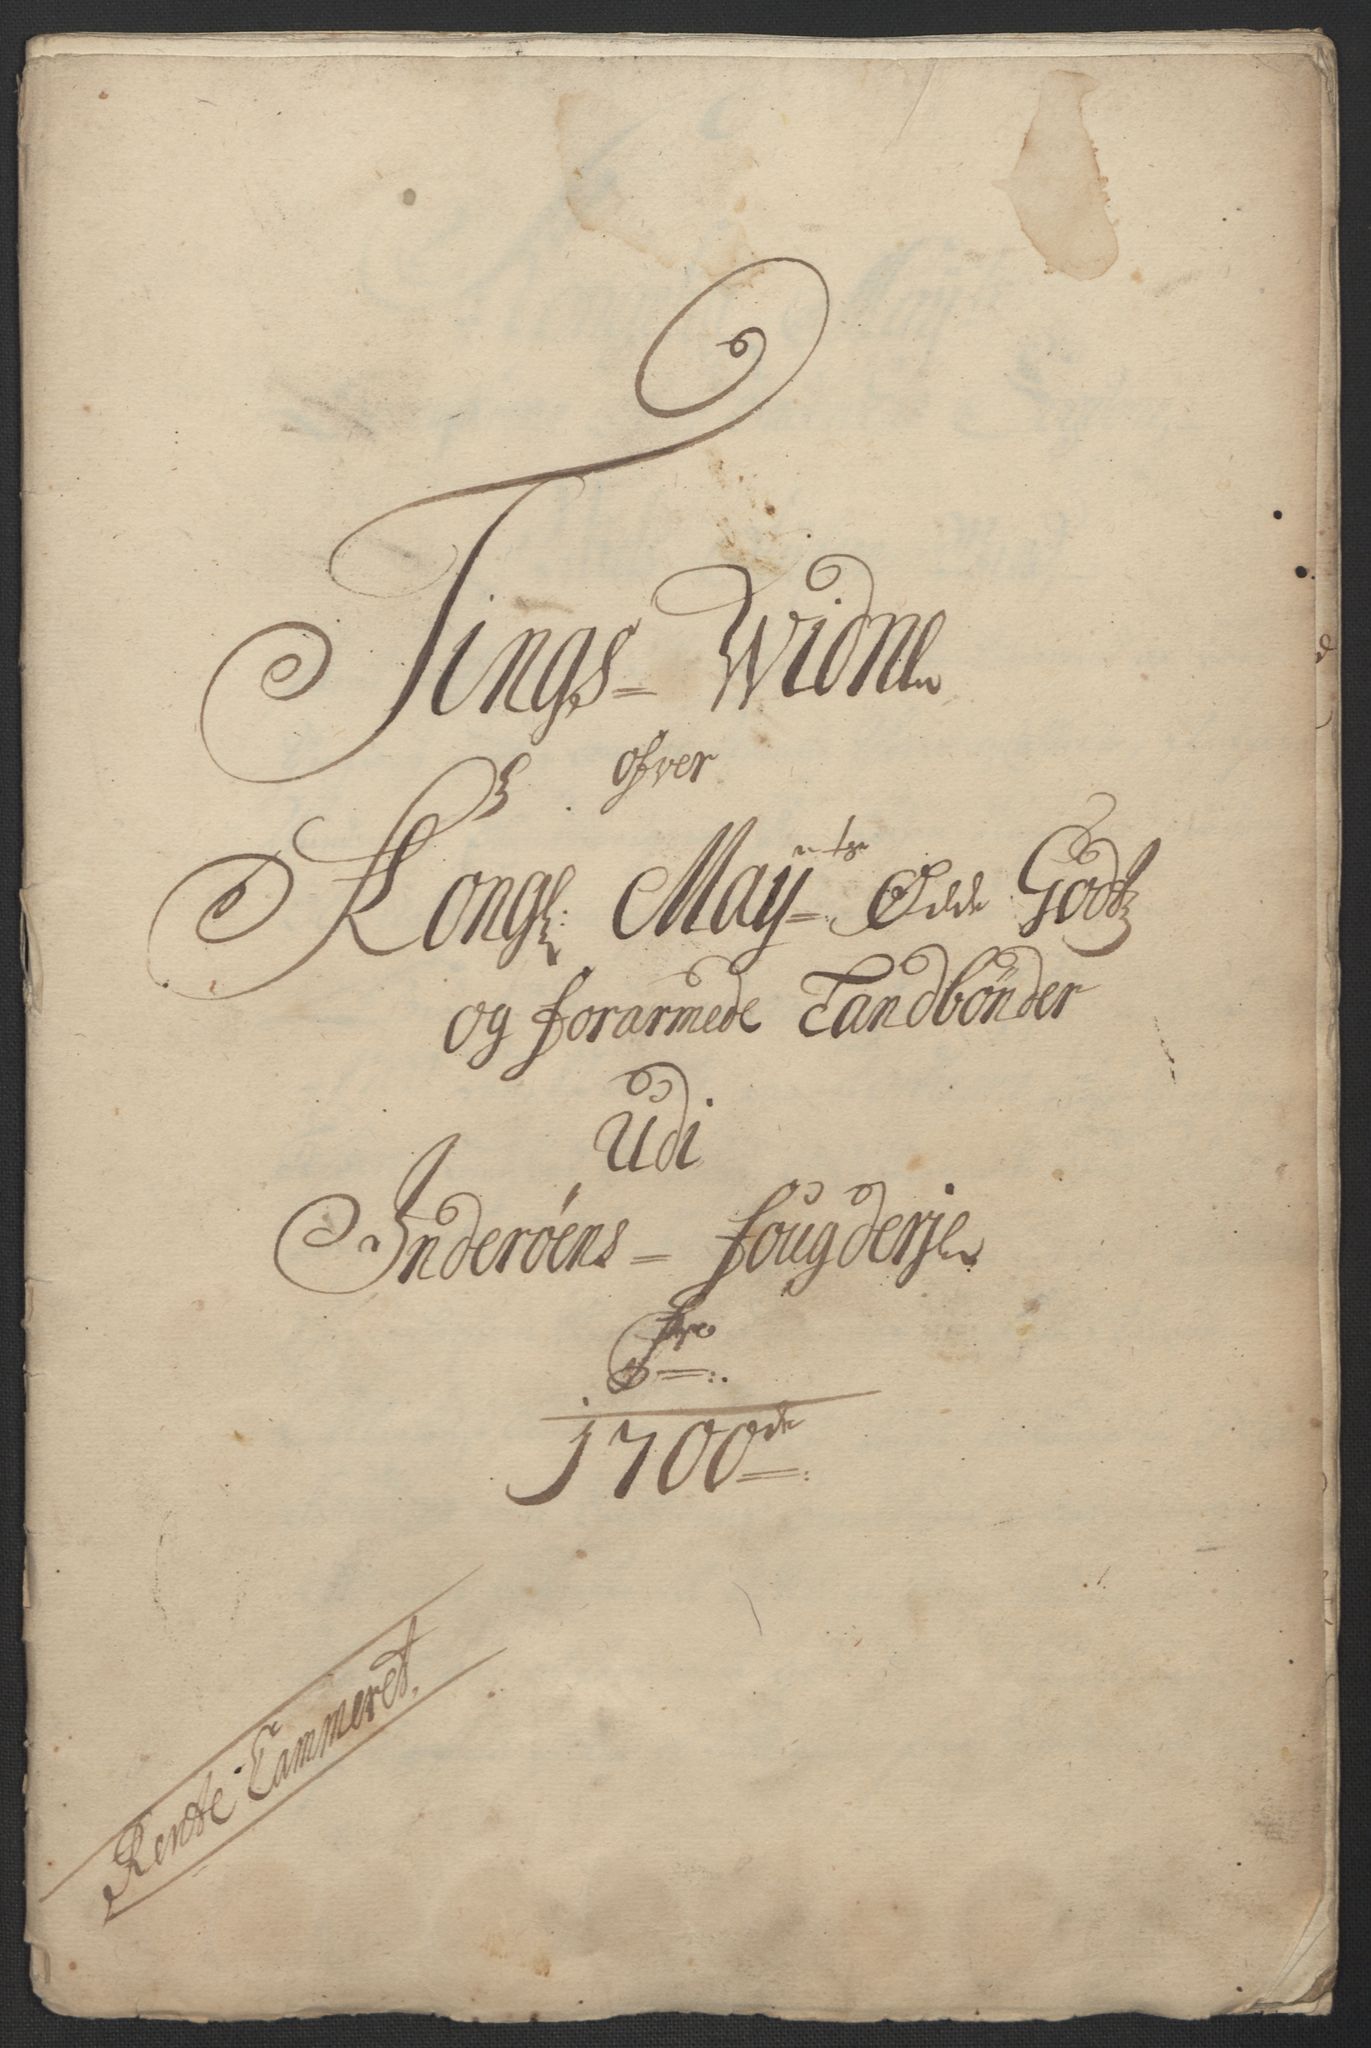 Tings- Widne
ofver
Kongl: Mayts Øde Godtz
og forarmede Landbönder
Udi
Inderöens- fougderje
pro
1700de
Rente Cammeret.